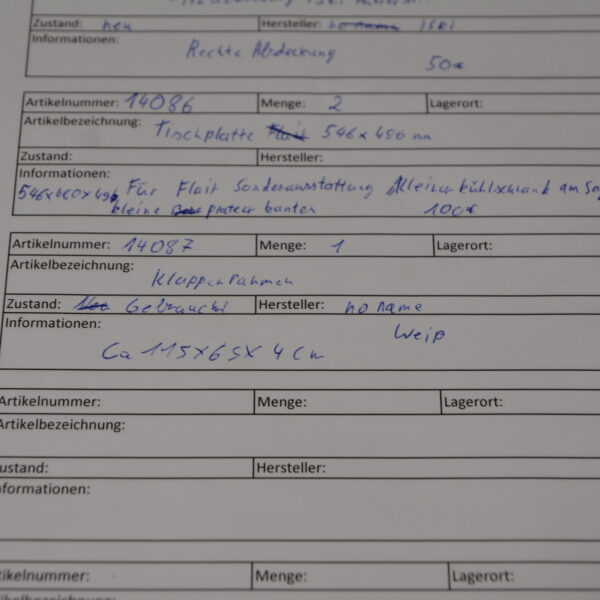 Zustand: neu Hersteller: no name ISRI
Informationen:
Rechte Abdeckung
50€
Artikelnummer: 14086 Menge: 2 Lagerort:
Artikelbezeichnung: Tischplatte Flair 546 x 486 mm
Zustand: Hersteller:
Informationen:
Für Flair Sonderausstattung kleiner Kühlschrank am
kleine kanten 100€
Artikelnummer: 14087 Menge: 1 Lagerort:
Artikelbezeichnung:
Klappenrahmen
Zustand: Neu Gebraucht Hersteller: no name
Informationen:
Weiß
Ca 115x65x4cm
Artikelnummer: Menge: Lagerort:
Artikelbezeichnung:
ustand: Hersteller:
nformationen:
tikelnummer: Menge: Lagerort: